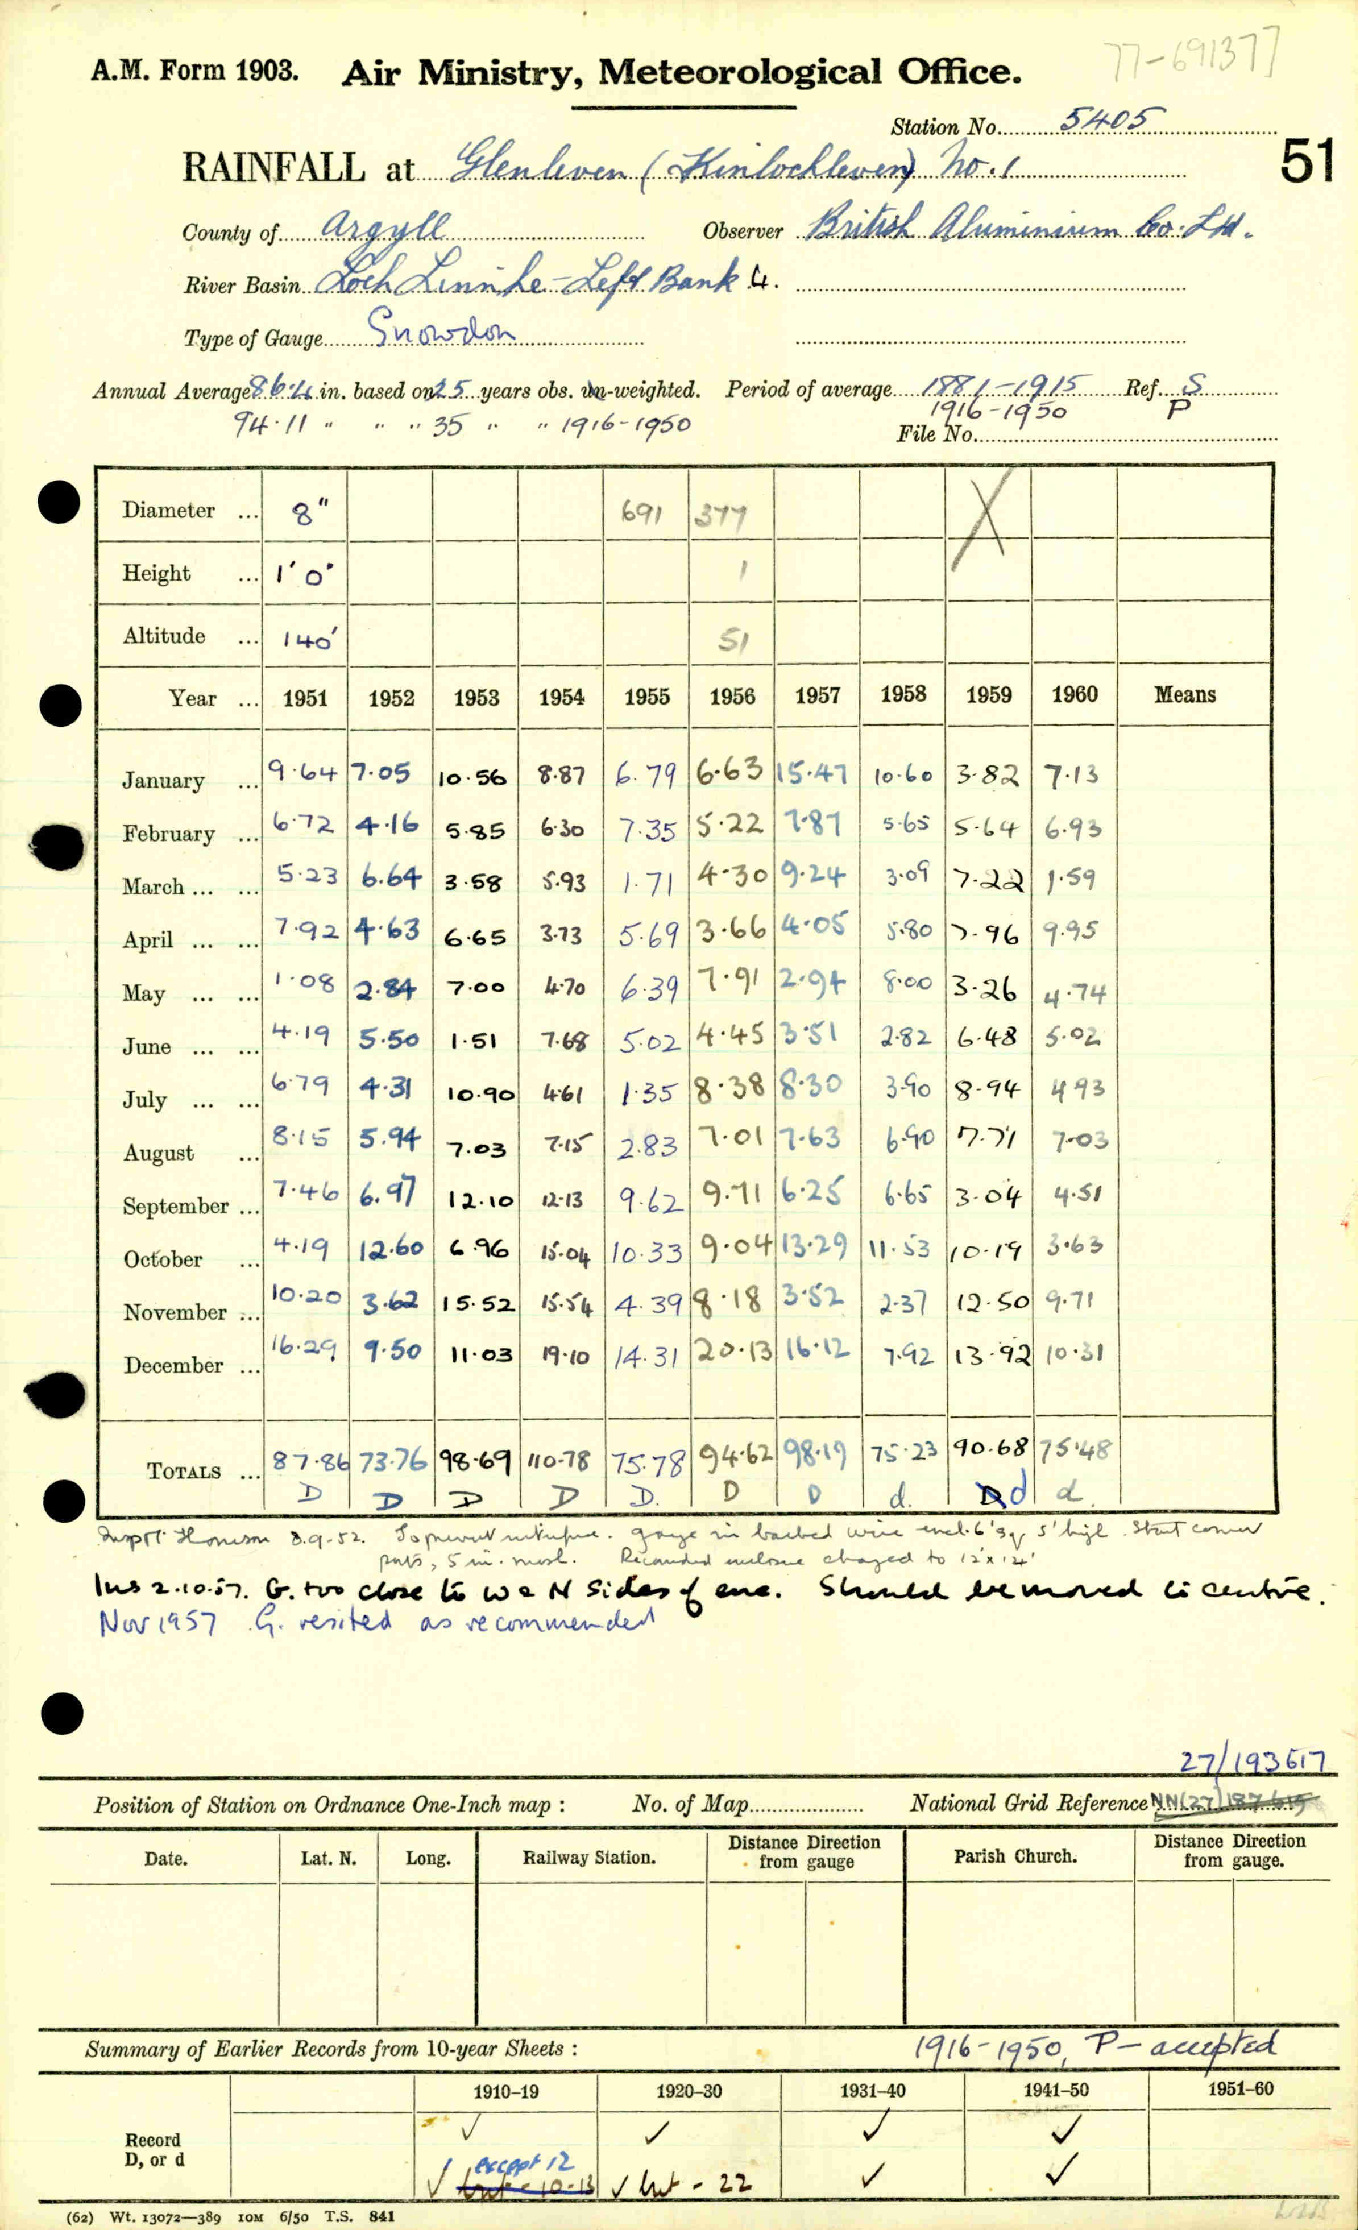 77-691377
A.M. Form 1903. Air Ministry, Meteorological Office.
Station No. 5405
RAINFALL at Glenleven (Kinlochleven) No. 1
51
County of Argyll Observer British Aluminium Co. Ltd.
River Basin Loch Linnhe - Left Bank 4.
Type of Gauge Snowdon
Annual Average 86.4 in. based on 25 years obs. un-weighted. Period of average 1881-1915 Ref. S
94.11 " " " 35 " " 1916-1950 1916-1950 P
File No.
Diameter ... 8" 691 377
Height ... 1'0" 1
Altitude ... 140' 51
Year ... 1951 1952 1953 1954 1955 1956 1957 1958 1959 1960 Means
January ... 9.64 7.05 10.56 8.87 6.79 6.63 15.47 10.60 3.82 7.13
February ... 6.72 4.16 5.85 6.30 7.35 5.22 7.87 5.65 5.64 6.93
March ... ... 5.23 6.64 3.58 5.93 1.71 4.30 9.24 3.09 7.22 1.59
April ... ... 7.92 4.63 6.65 3.73 5.69 3.66 4.05 5.80 7.96 9.95
May ... ... 1.08 2.84 7.00 4.70 6.39 7.91 2.94 8.00 3.26 4.74
June ... ... 4.19 5.50 1.51 7.68 5.02 4.45 3.51 2.82 6.48 5.02
July ... ... 6.79 4.31 10.90 4.61 1.35 8.38 8.30 3.90 8.94 4.93
August ... 8.15 5.94 7.03 7.15 2.83 7.01 7.63 6.90 7.71 7.03
September ... 7.46 6.97 12.10 12.13 9.62 9.71 6.25 6.65 3.04 4.51
October ... 4.19 12.60 6.96 15.04 10.33 9.04 13.29 11.53 10.19 3.63
November ... 10.20 3.62 15.52 15.54 4.39 8.18 3.52 2.37 12.50 9.71
December ... 16.29 9.50 11.03 19.10 14.31 20.13 16.12 7.92 13.92 10.31
TOTALS ... 87.86 73.76 98.69 110.78 75.78 94.62 98.19 75.23 90.68 75.48
D D D D D. D D d. D d d.
8.9.52. To prevent gauge in barbed wire encl. 6' sq 5' high. Strut corner
posts, 5 in. mesh. enclosure changed to 12' x 12'
Ins 2.10.57. G. too close to W & N sides of enc. Should be moved to centre.
Nov 1957 G. resited as recommended
27/193617
Position of Station on Ordnance One-Inch map : No. of Map National Grid Reference NN(27)187615
Date. Lat. N. Long. Railway Station. Distance Direction from gauge Parish Church. Distance Direction from gauge.
Summary of Earlier Records from 10-year Sheets : 1916-1950, P - accepted
1910-19 1920-30 1931-40 1941-50 1951-60
Record ✓ ✓ ✓ ✓
D, or d ✓ except 12 but 10-13 ✓ but - 22 ✓ ✓
(62) Wt. 13072—389 10M 6/50 T.S. 841